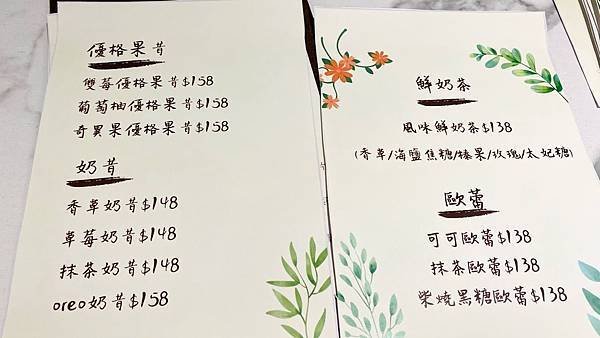 優格果昔
雙莓優格果昔$158
葡萄柚優格果昔$158
奇異果優格果昔$158
奶昔
香草奶昔$148
草莓奶昔$148
抹茶奶昔$148
oreo奶昔$158
鮮奶茶
風味鮮奶茶$138
(香草/海鹽焦糖/榛果/玫瑰/太妃糖)
歐蕾
可可歐蕾$138
抹茶歐蕾$138
柴燒黑糖歐蕾$138